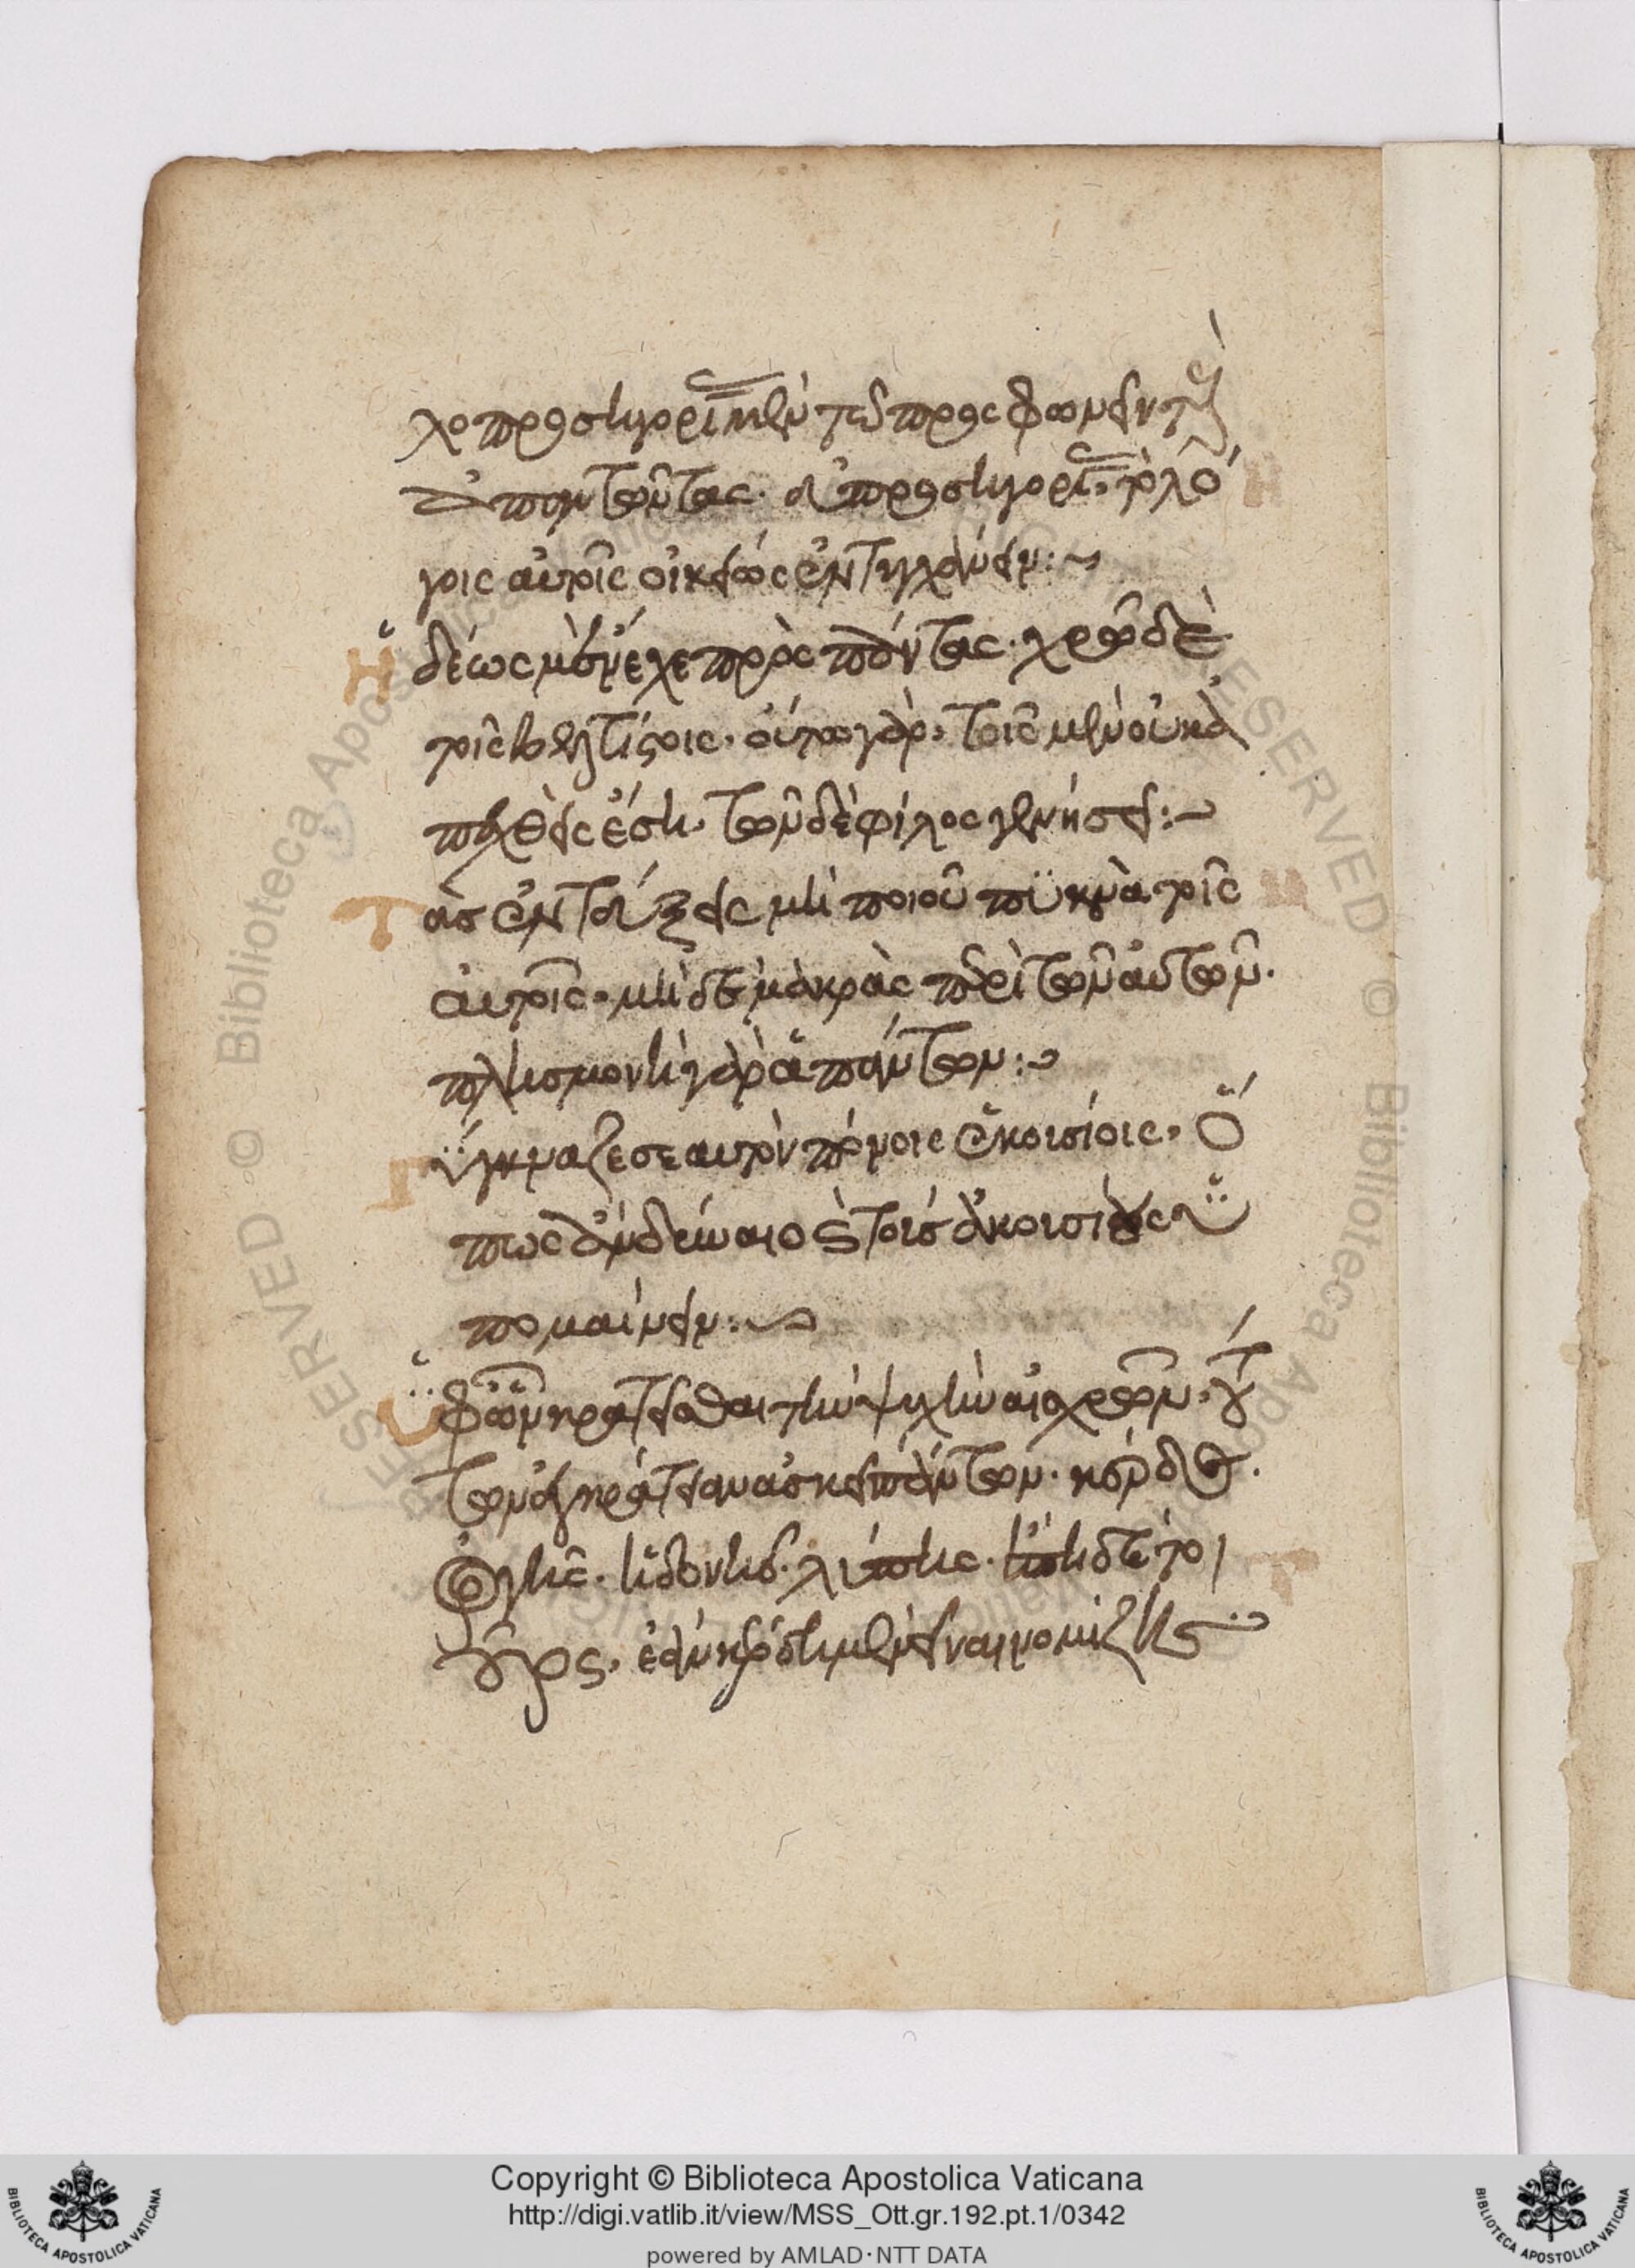 χοπροσηγορίαν μὲν γὰρ τὸ προσφωνεῖν τοὺς
ἀπαντῶντας. εὐπροσηγορίας δὲ τὸ λό
γοις αὐτοῖς οἰκείως ἐντυγχάνειν:~
Ἡδέως μὲν ἔχε πρὸς πάντας. χρῶ δὲ
τοῖς βελτίστοις. οὕτω γὰρ, τοῖς μὲν οὐκ ἀ
πεχθὴς ἔση. τῶν δὲ φίλος γενήσει:~
Τὰς ἐντεύξεις μὴ ποιοῦ πϋκνὰ τοῖς
αὐτοῖς. μὴ δὲ μακρὰς περὶ τῶν αὐτῶν.
πλησμονὴ γὰρ ἁπάντων:~
Γύμναζε σεαυτὸν πόνοις ἑκουσίοις, ὅ
πως ἂν δύναιο καὶ τοὺς ἀκουσίους ὑ
πομαίνειν:~
Ὑφ' ὧν κρατεῖσθαι τὴν ψυχὴν αἰσχρὸν, τού
των ἐγκράτειαν ἄσκει πάντων. κέρδους.
ὀργῆς. ἡδονῆς. λύπης. ἔση δὲ τοι
οῦτος, ἐὰν κέρδη μὲν εἶναι νομίζης
Copyright © Biblioteca Apostolica Vaticana
http://digi.vatlib.it/view/MSS_Ott.gr.192.pt.1/0342
powered by AMLAD·NTT DATA
BIBLIOTECA APOSTOLICA VATICANA
BIBLIOTECA APOSTOLICA VATICANA